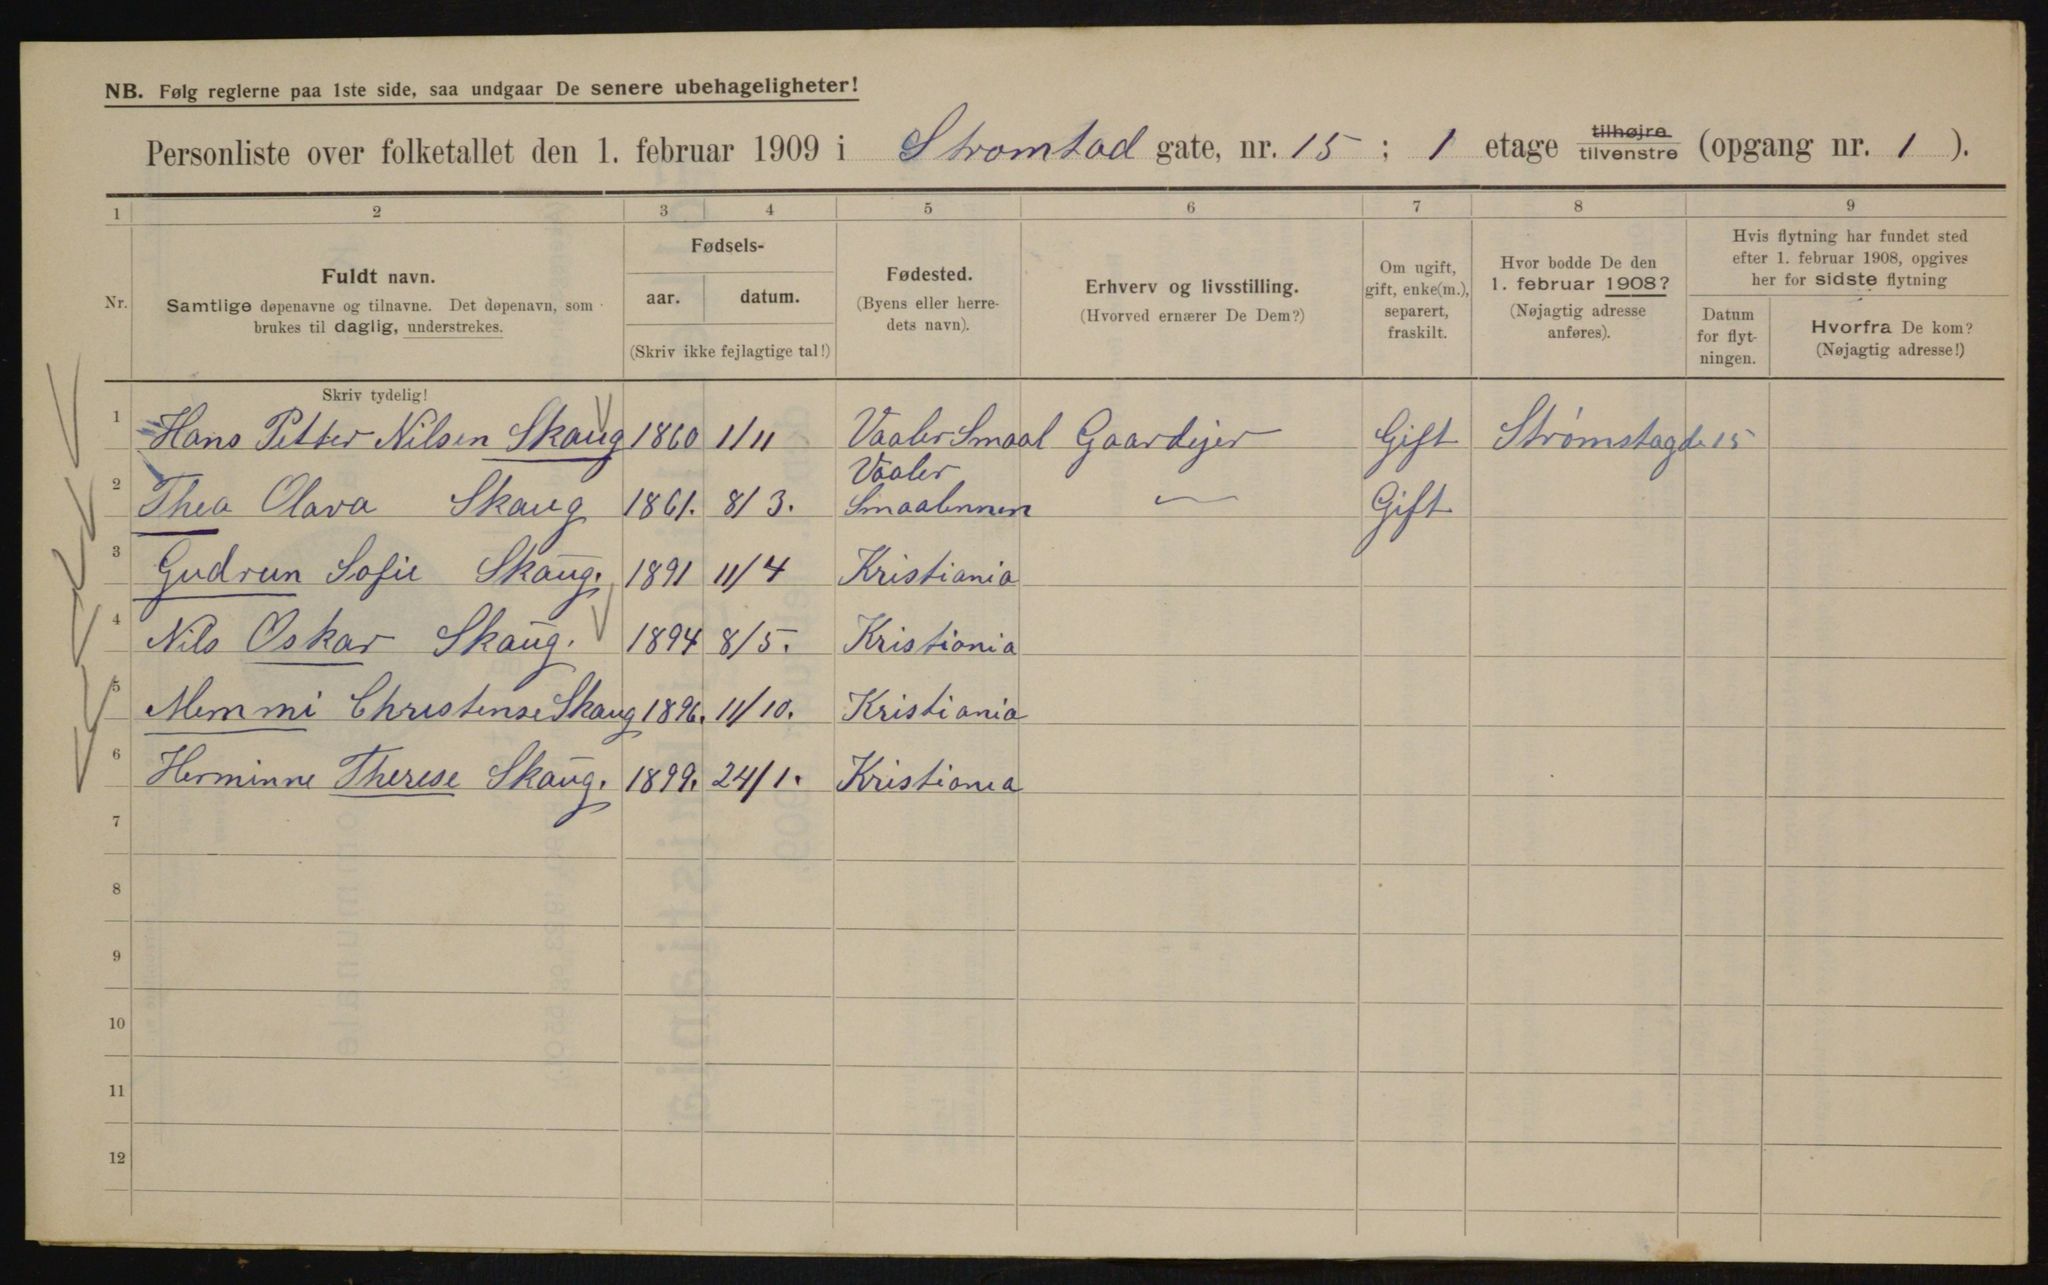 NB. Følg reglerne paa 1ste side, saa undgaar De senere ubehageligheter!
Personliste over folketallet den 1. februar 1909 i Stromtad gate, nr. 15 ; 1 etage tilhøjre tilvenstre (opgang nr. 1 ).
1 2 3 4 5 6 7 8 9
Nr.
Fuldt navn.
Samtlige døpenavne og tilnavne. Det døpenavn, som
brukes til daglig, understrekes.
Fødsels-
aar. datum.
(Skriv ikke fejlagtige tal!)
Fødested.
(Byens eller herre-
dets navn).
Erhverv og livsstilling.
(Hvorved ernærer De Dem?)
Om ugift,
gift, enke(m.),
separert,
fraskilt.
Hvor bodde De den
1. februar 1908?
(Nøjagtig adresse
anføres).
Hvis flytning har fundet sted
efter 1. februar 1908, opgives
her for sidste flytning
Datum
for flyt-
ningen.
Hvorfra De kom?
(Nøjagtig adresse!)
Skriv tydelig!
1 Hans Petter Nilsen Skaug 1860 1/11 Vaaler Smaal Gaardejer Gift Strømstagde 15
2 Thea Olava Skaug 1861. 8/3. Vaaler Smaalennen — Gift
3 Gudrun Sofie Skaug. 1891 11/4 Kristiania
4 Nils Oskar Skaug. 1894 8/5. Kristiania
5 Memmi Christense Skaug 1896. 11/10. Kristiania
6 Herminne Therese Skaug. 1899. 24/1. Kristiania
7
8
9
10
11
12